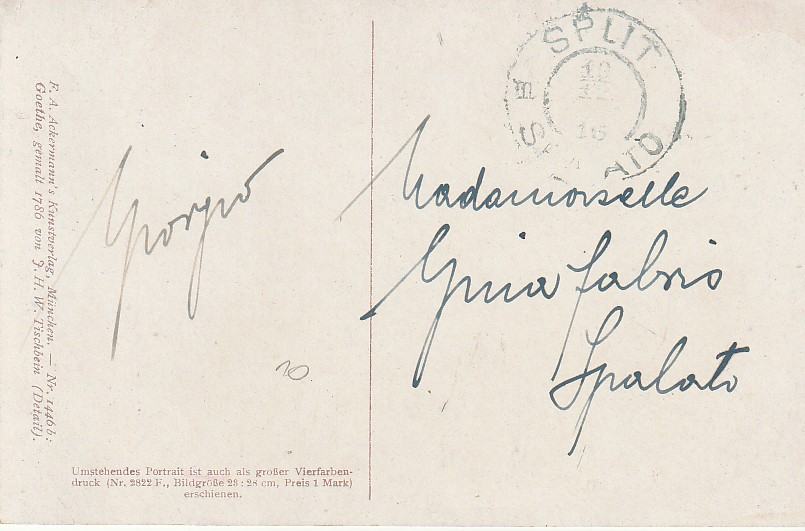 F. A. Ackermann's Kunstverlag, München. — Nr. 1446 b:
Goethe, gemalt 1786 von J. H. W. Tischbein (Detail).
Giorgio
20
Umstehendes Portrait ist auch als großer Vierfarben-
druck (Nr. 2822 F., Bildgröße 23 : 28 cm, Preis 1 Mark)
erschienen.
SPLIT
Madamorselle
Gina Fabrio
Spalato